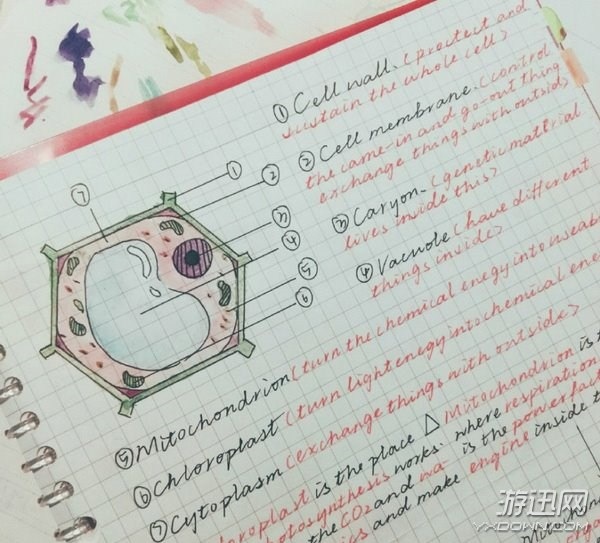 ① Cell wall. (protect and
sustain the whole cell)
② Cell membrane. (control
the came-in and go-out thing
exchange things with outside
③ Caryon. (genetic material
lives inside this)
④ Vacuole (have different
things inside)
⑤ Mitochondrion (turn the chemical enegy into useab
⑥ Chloroplast (turn light enegy into chemical ene
⑦ Cytoplasm (exchange things with outside)
hloroplast is the place △ Mitochondrion is t
hotosynthesis works. where respiration
the CO2 and wa- is the power fact
and make engine inside t
①
②
③
④
⑤
⑥
⑦
游迅网
VXDOWN.COM